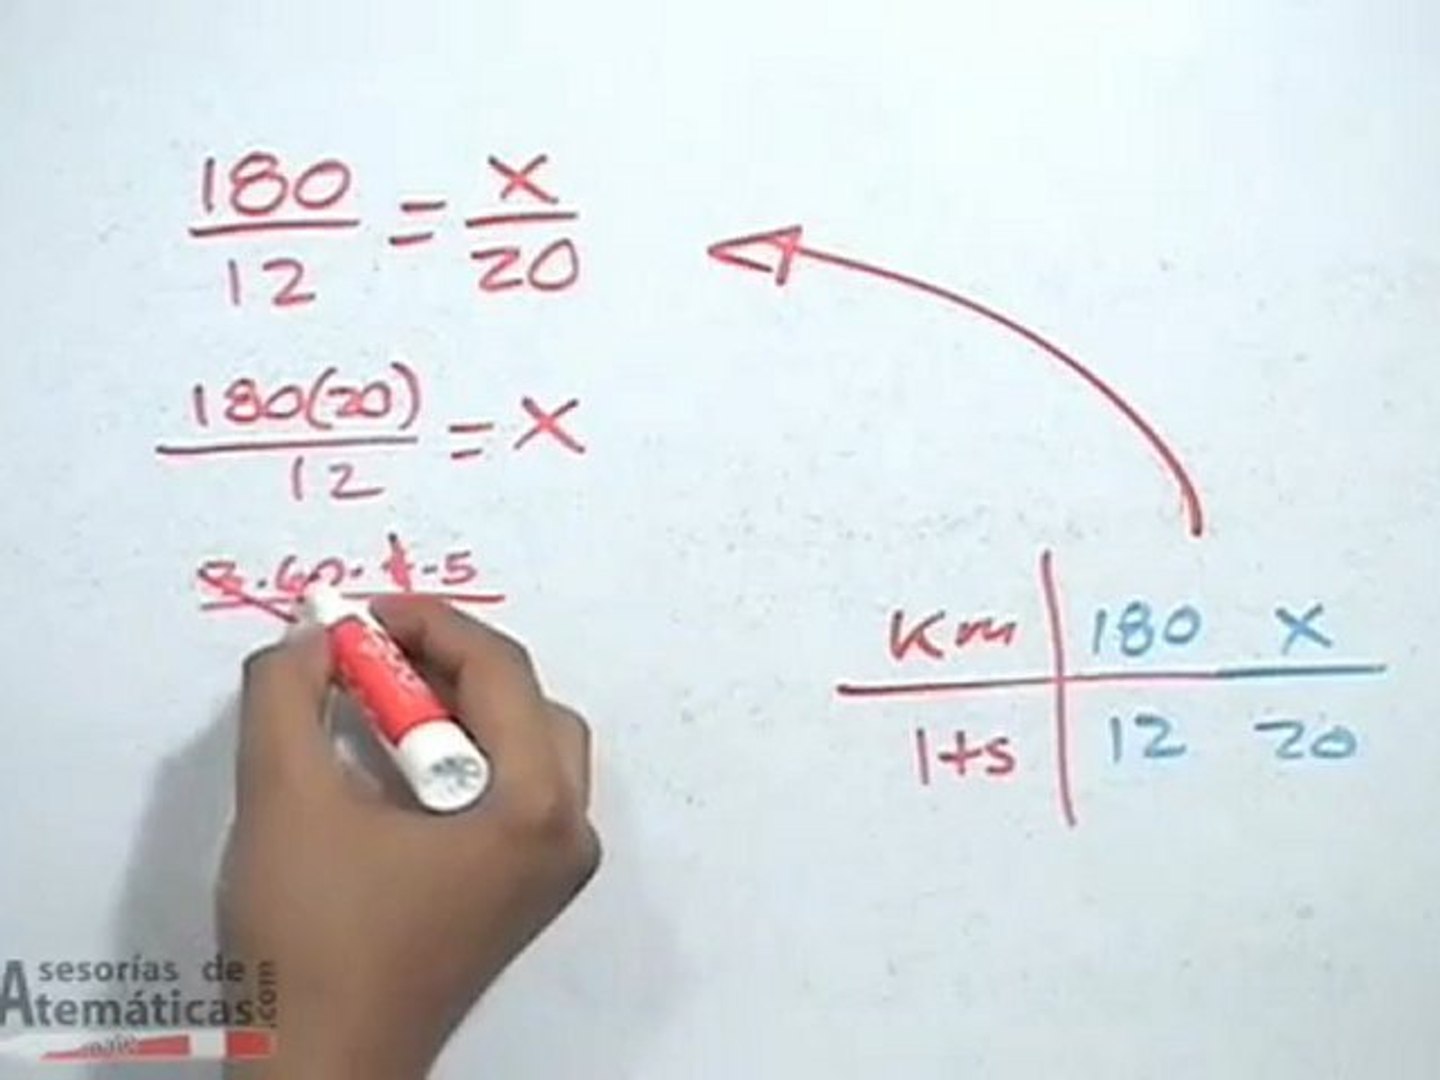 180/12 = x/20
180(20)/12 = x
3·60·4·5
Km 180 x
lts 12 20
Asesorías de
Matemáticas.com